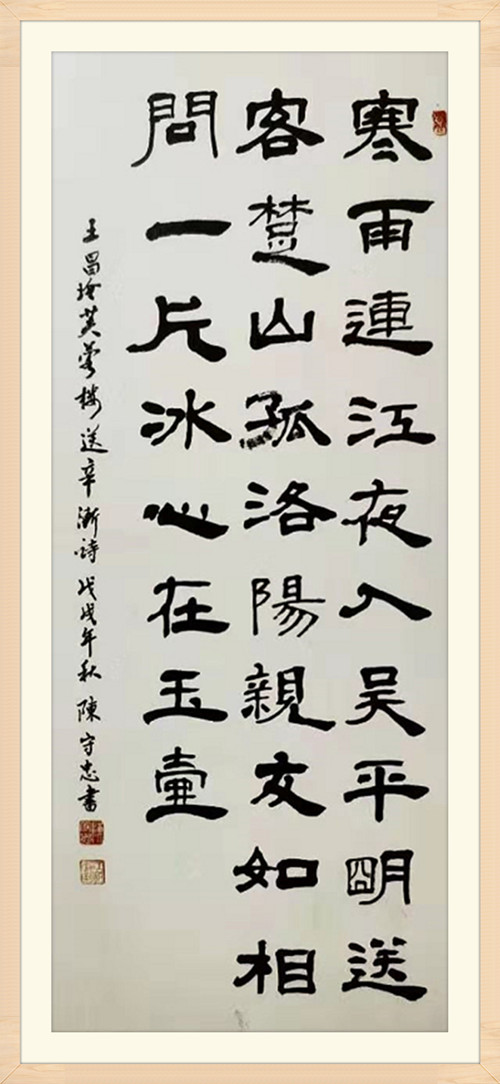 寒雨連江夜入吴平明送
客楚山孤洛陽親友如相
問一片冰心在玉壺
王昌齡芙蓉樓送辛漸詩戊戌年秋陳守忠書